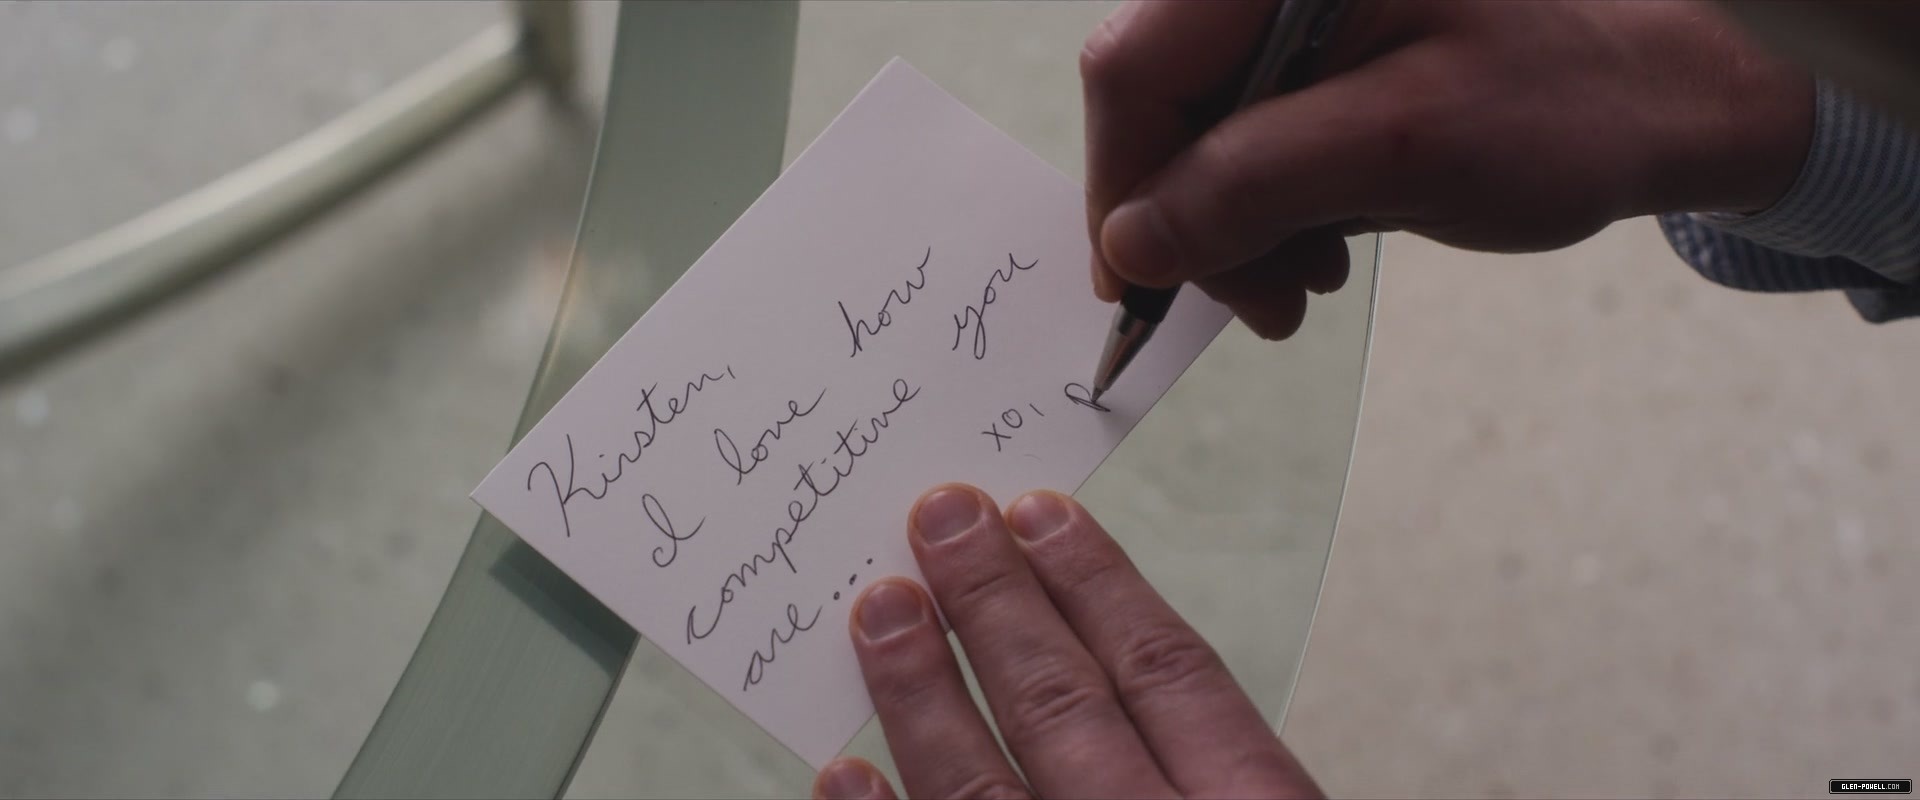 Kirsten,
I love how
competitive you
are...
xo, R
GLEN-POWELL.COM